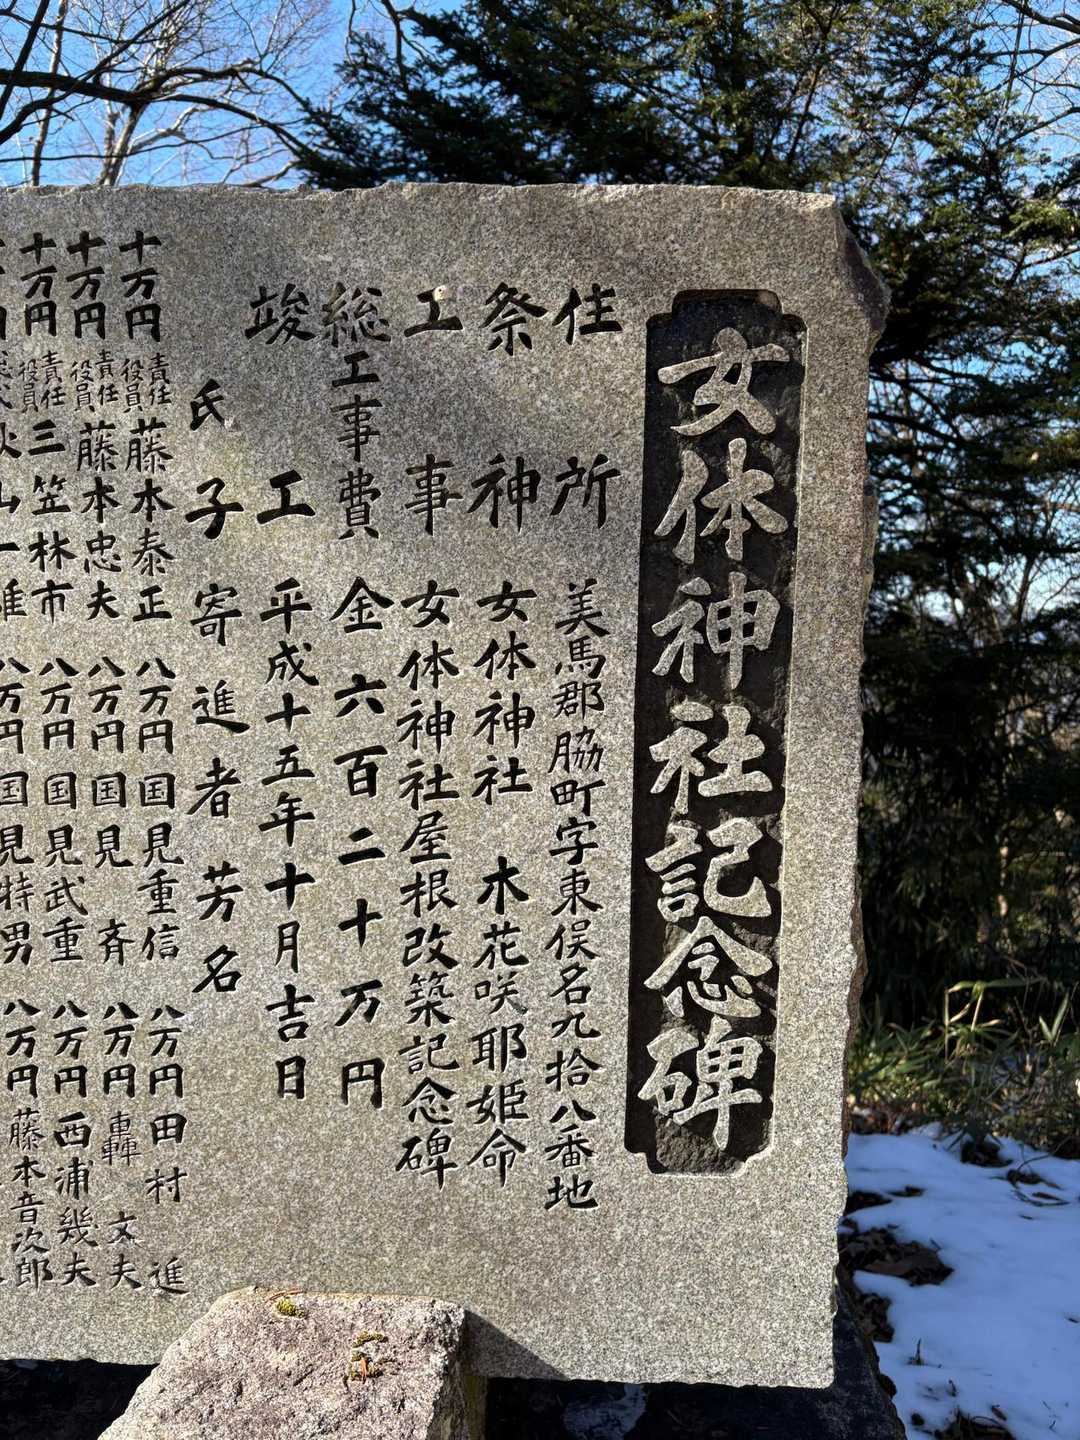 女体神社記念碑
住所 美馬郡脇町字東俣名九拾八番地
祭神 女体神社 木花咲耶姫命
工事 女体神社屋根改築記念碑
総工事費 金六百二十万円
竣工 平成十五年十月吉日
氏子寄進者芳名
十万円 責任役員 藤本泰正
八万円 国見重信
八万円 田村 進
十万円 責任役員 藤本忠夫
八万円 国見 斉
八万円 轟 文夫
十万円 責任役員 三笠林市
八万円 国見武重
八万円 西浦幾夫
八万円 国見特男
八万円 藤本音次郎